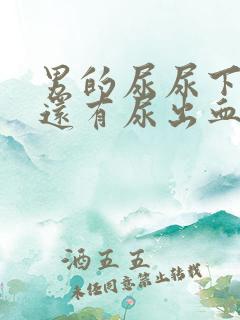 男的尿尿下
還有尿出血
酒五五
未经同意禁止转载